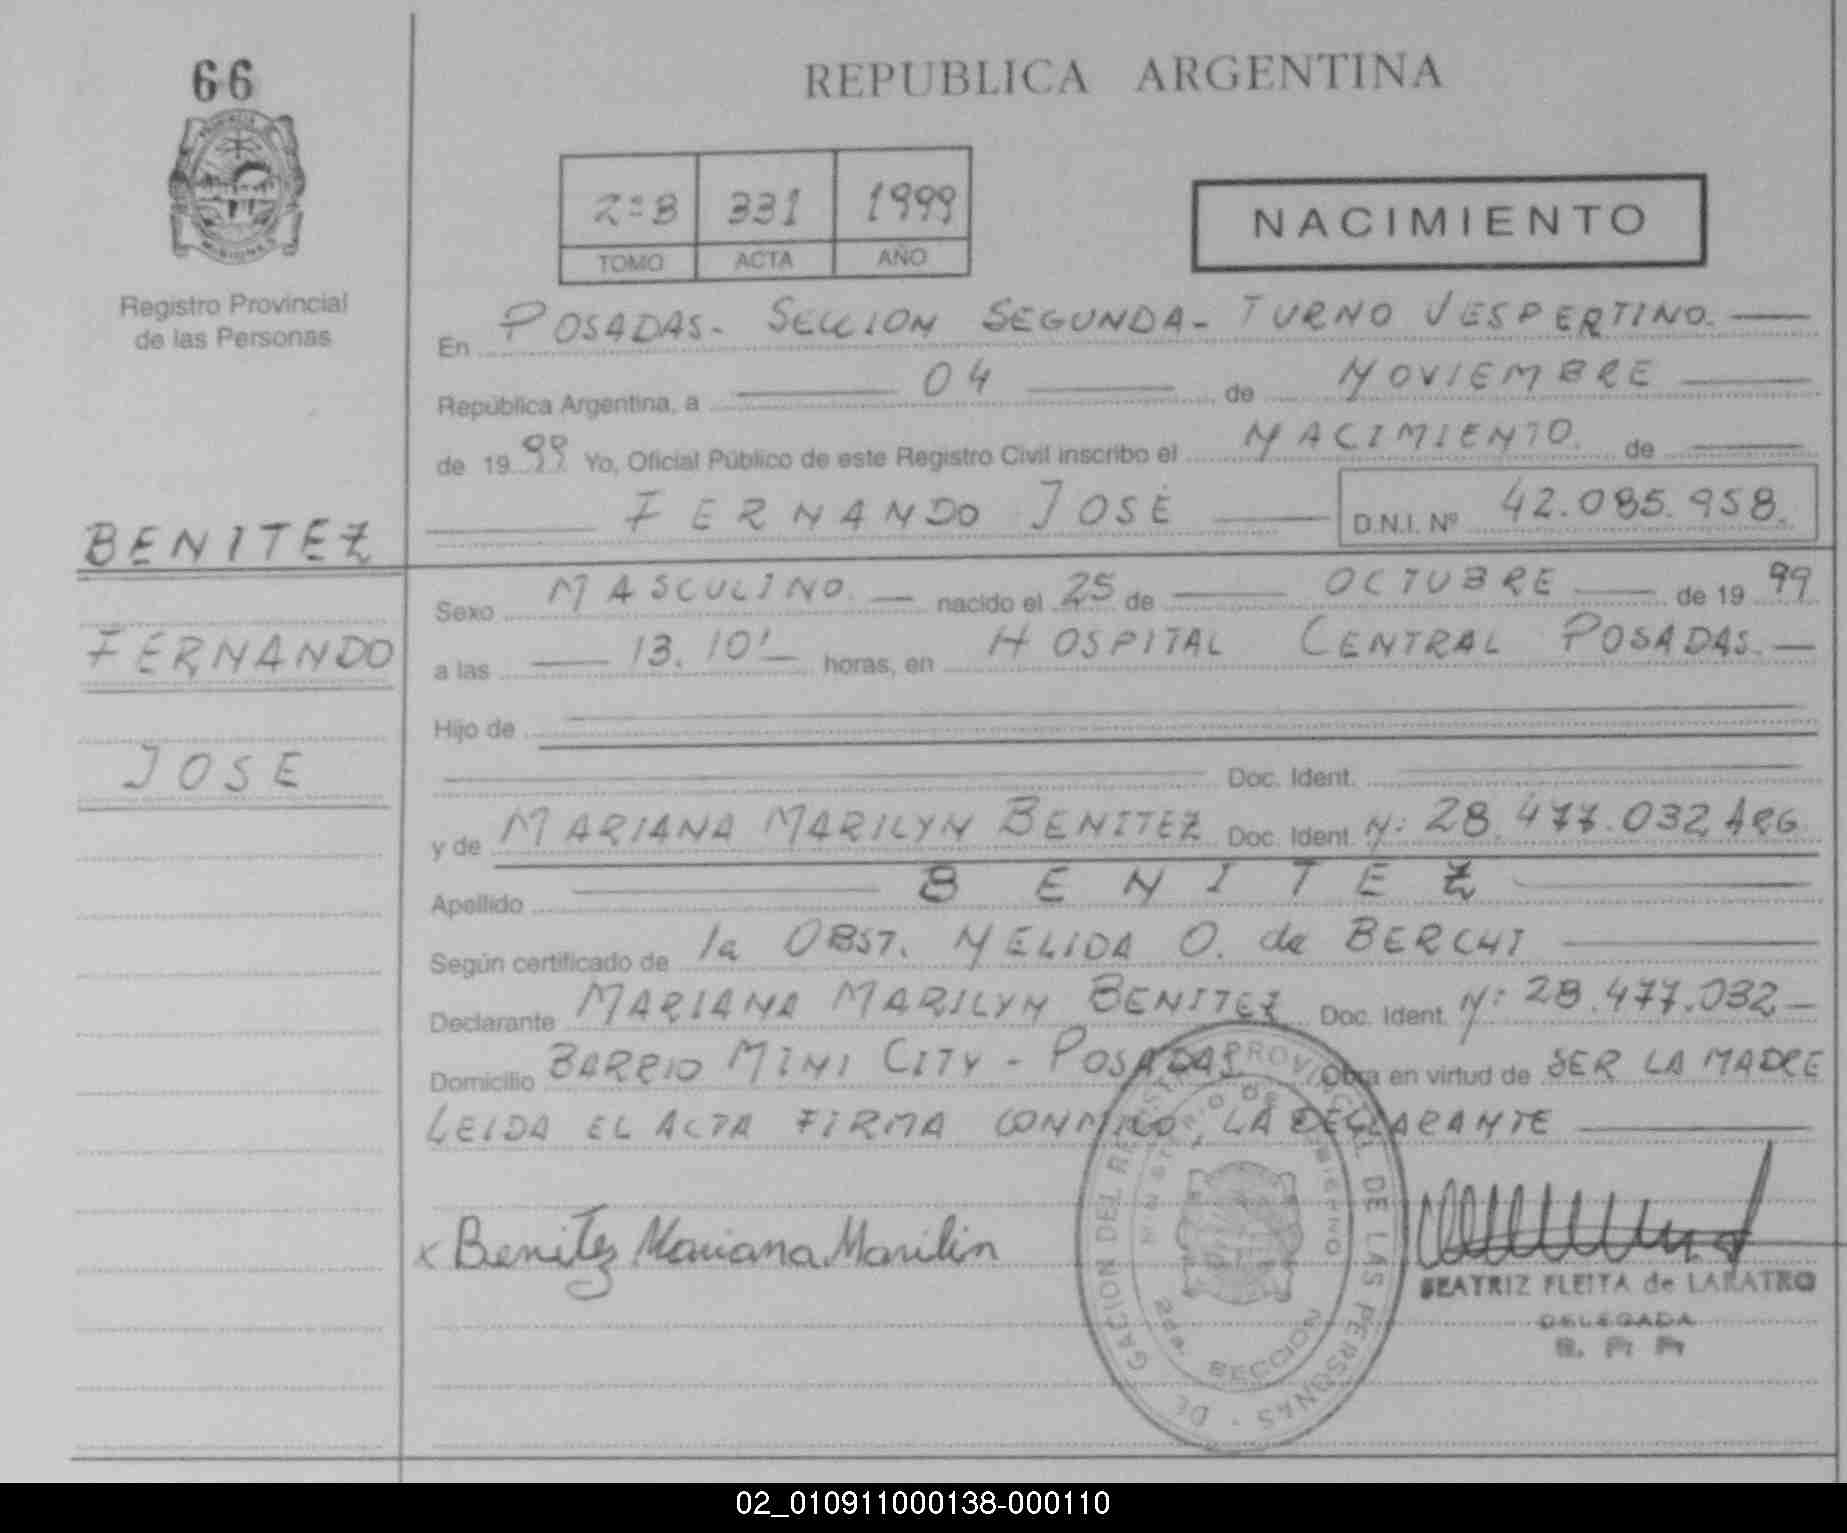 66
REPUBLICA ARGENTINA
2=B 331 1999
TOMO ACTA AÑO
NACIMIENTO
Registro Provincial
de las Personas
En POSADAS- SECCION SEGUNDA- TURNO VESPERTINO.
República Argentina, a 04 de NOVIEMBRE
de 1999 Yo, Oficial Público de este Registro Civil inscribo el NACIMIENTO. de
FERNANDO JOSÉ D.N.I. Nº 42.085.958.
BENITEZ
FERNANDO
JOSE
Sexo MASCULINO. nacido el 25 de OCTUBRE de 1999
a las 13.10' horas, en HOSPITAL CENTRAL POSADAS.
Hijo de
Doc. Ident.
y de MARIANA MARILYN BENITEZ Doc. Ident. N: 28.477.032 ARG.
Apellido BENITEZ
Según certificado de la OBST. NELIDA O. de BERCHI
Declarante MARIANA MARILYN BENITEZ Doc. Ident. N: 28.477.032
Domicilio BARRIO MINI CITY - POSADAS Obra en virtud de SER LA MADRE
LEIDA EL ACTA FIRMA CONMIGO, LA DECLARANTE
x Benitez Mariana Marilin
DELEGACION DEL REGISTRO PROVINCIAL DE LAS PERSONAS
MINISTERIO DE GOBIERNO
2da. SECCION
BEATRIZ FLEITA de LABATRO
DELEGADA
02_010911000138-000110